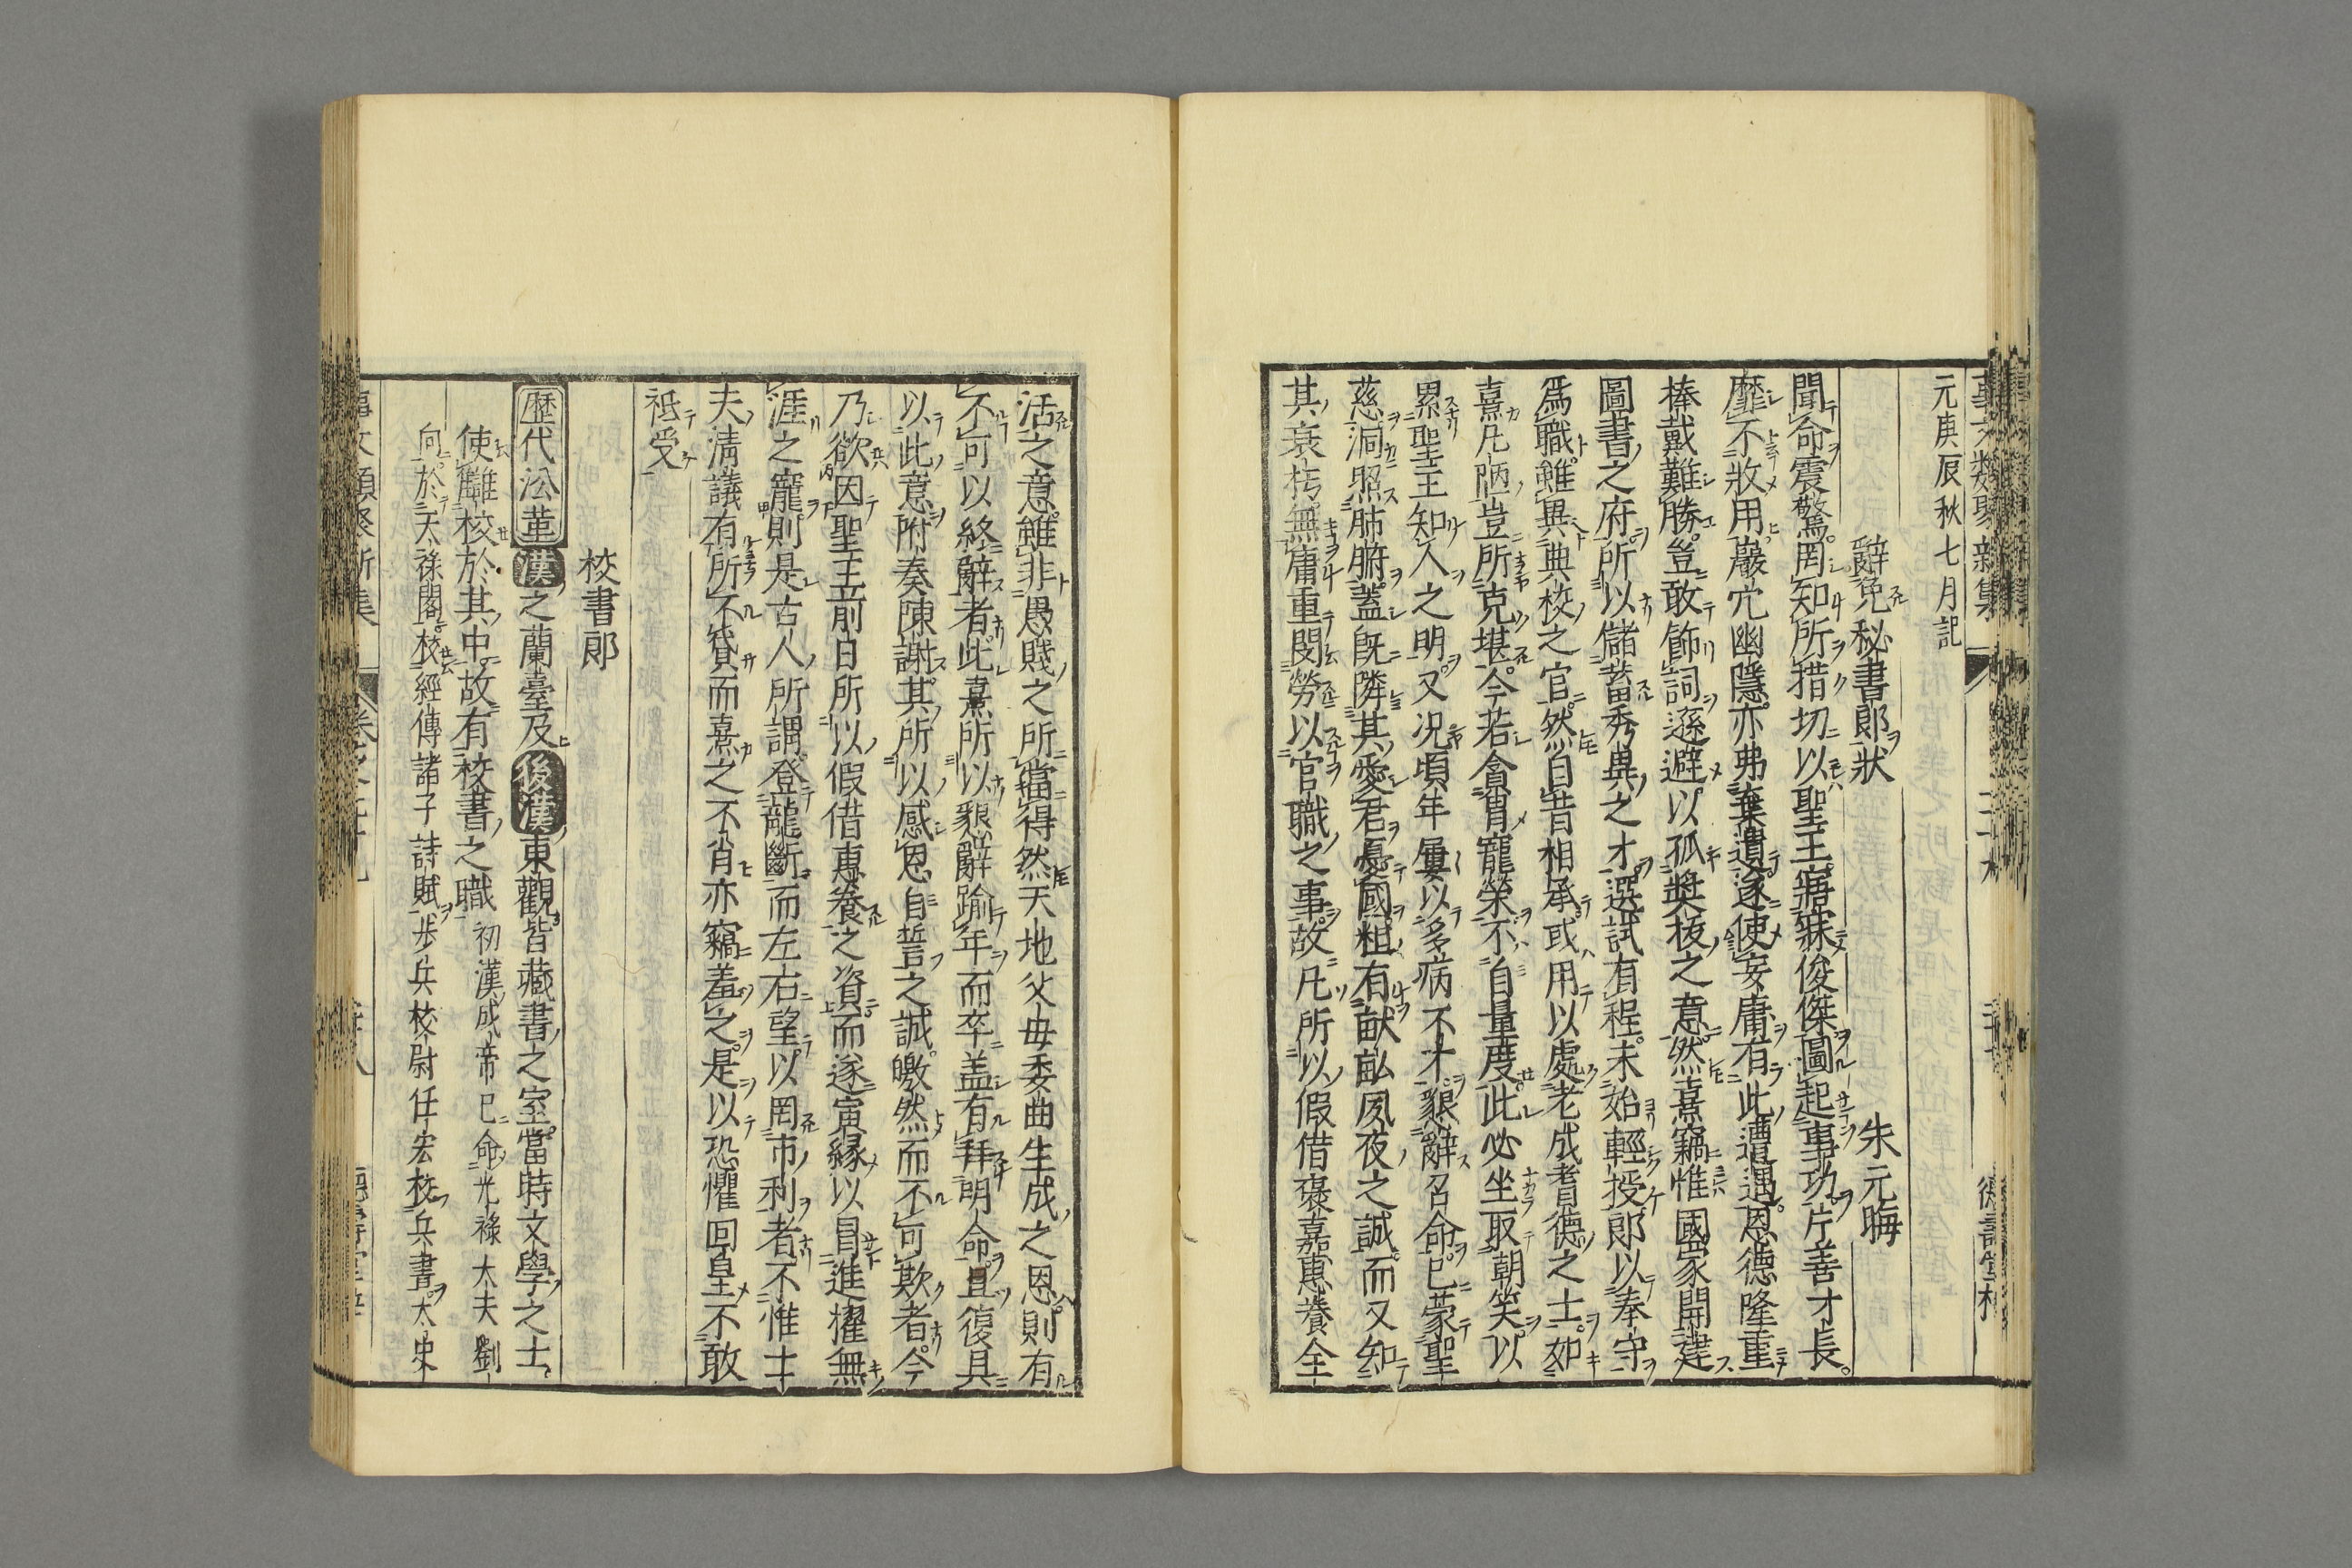 事文類聚新集
元庚辰秋七月記
辭免秘書郎狀　朱元晦
聞命震驚罔知所措切以聖王寤寐俊傑圖起事功片善才長
靡不收用巖穴幽隱亦弗棄遺遂使妄庸有此遭遇恩德隆重
捧戴難勝豈敢飾詞遜避以孤奬拔之意然熹竊惟國家開建
圖書之府所以儲蓄秀異之才選試有程未始輕授郎以奉守
爲職雖異典校之官然自昔相承或用以處老成耆德之士如
熹凡陋豈所克堪今若貪冐寵榮不自量度此必坐取朝笑以
累聖王知人之明又况頃年屢以多病不才懇辭召命已蒙聖
慈洞照肺腑蓋旣隣其愛君憂國粗有畎畒夙夜之誠而又知
其衰朽無庸重閔勞以官職之事故凡所以假借褒嘉惠養全
活之意雖非愚賤之所當得然天地父母委曲生成之恩則有
不可以終辭者此熹所以懇辭踰年而卒盖有拜明命且復具
以此意附奏陳謝其所以感恩自誓之誠皦然而不可欺者今
乃欲因聖王前日所以假借惠養之資而遂寅緣以冒進擢無
涯之寵則是古人所謂登龍斷而左右望以罔市利者不惟士
夫清議有所不貸而熹之不肖亦竊羞之是以恐懼回皇不敢
祗受
校書郎
歷代沿革漢之蘭臺及後漢東觀皆藏書之室當時文學之士
使讎校於其中故有校書之職初漢成帝已命光祿大夫劉
向於天祿閣校經傳諸子詩賦步兵校尉任宏校兵書太史